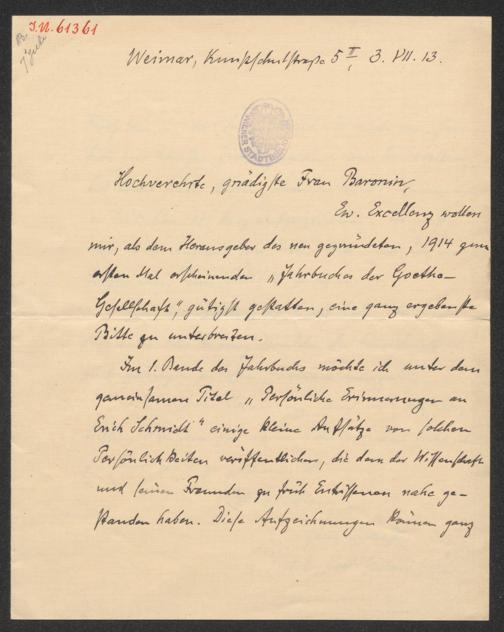 J.N. 61361
Weimar, Kunstschulstraße 5 II, 3. VII. 13.
WIENER STADTBIBL
Hochverehrte, gnädigste Frau Baronin,
Ew. Excellenz wollen
mir, als dem Herausgeber des neu gegründeten, 1914 zum
ersten Mal erscheinenden „Jahrbuches der Goethe-
Gesellschaft", gütigst gestatten, eine ganz ergebenste
Bitte zu unterbreiten.
Im 1. Bande des Jahrbuchs möchte ich unter dem
gemeinsamen Titel „Persönliche Erinnerungen an
Erich Schmidt" einige kleine Aufsätze von solchen
Persönlichkeiten veröffentlichen, die dem der Wissenschaft
und seinen Freunden zu früh Entrissenen nahe ge-
standen haben. Diese Aufzeichnungen können ganz